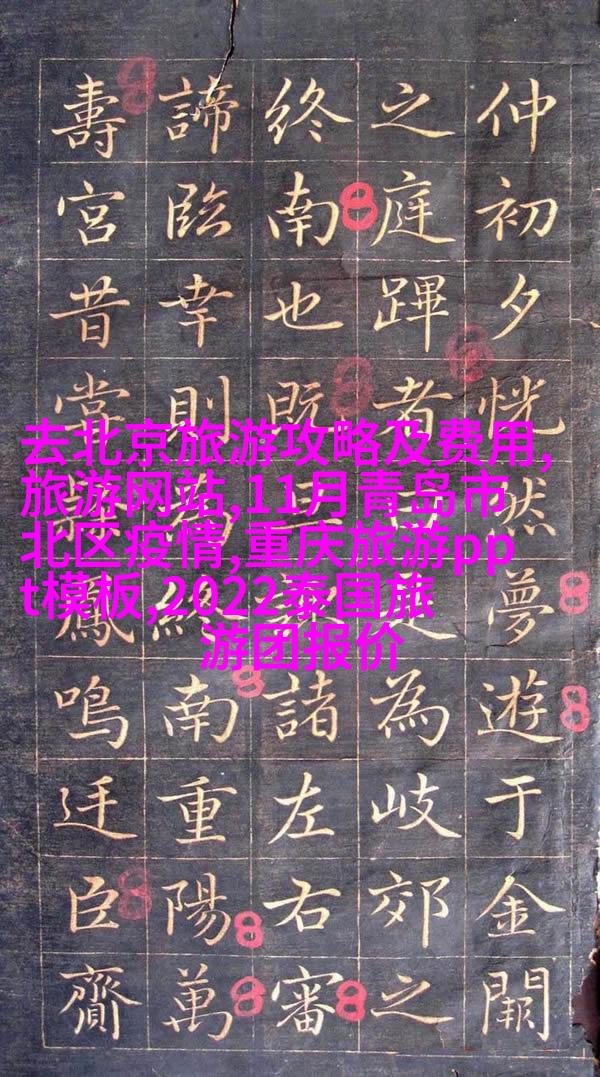 仲初夕恍然夢遊于金闕
之庭蹕者是為岐郊之
終南也既諸左右審
諦臨幸則為終南重陽萬
壽宮昔嘗鳳鳴廷臣齎
去北京旅游攻略及费用,
旅游网站,11月青岛市
北区疫情,重庆旅游pp
t模板,2022泰国旅
游团报价